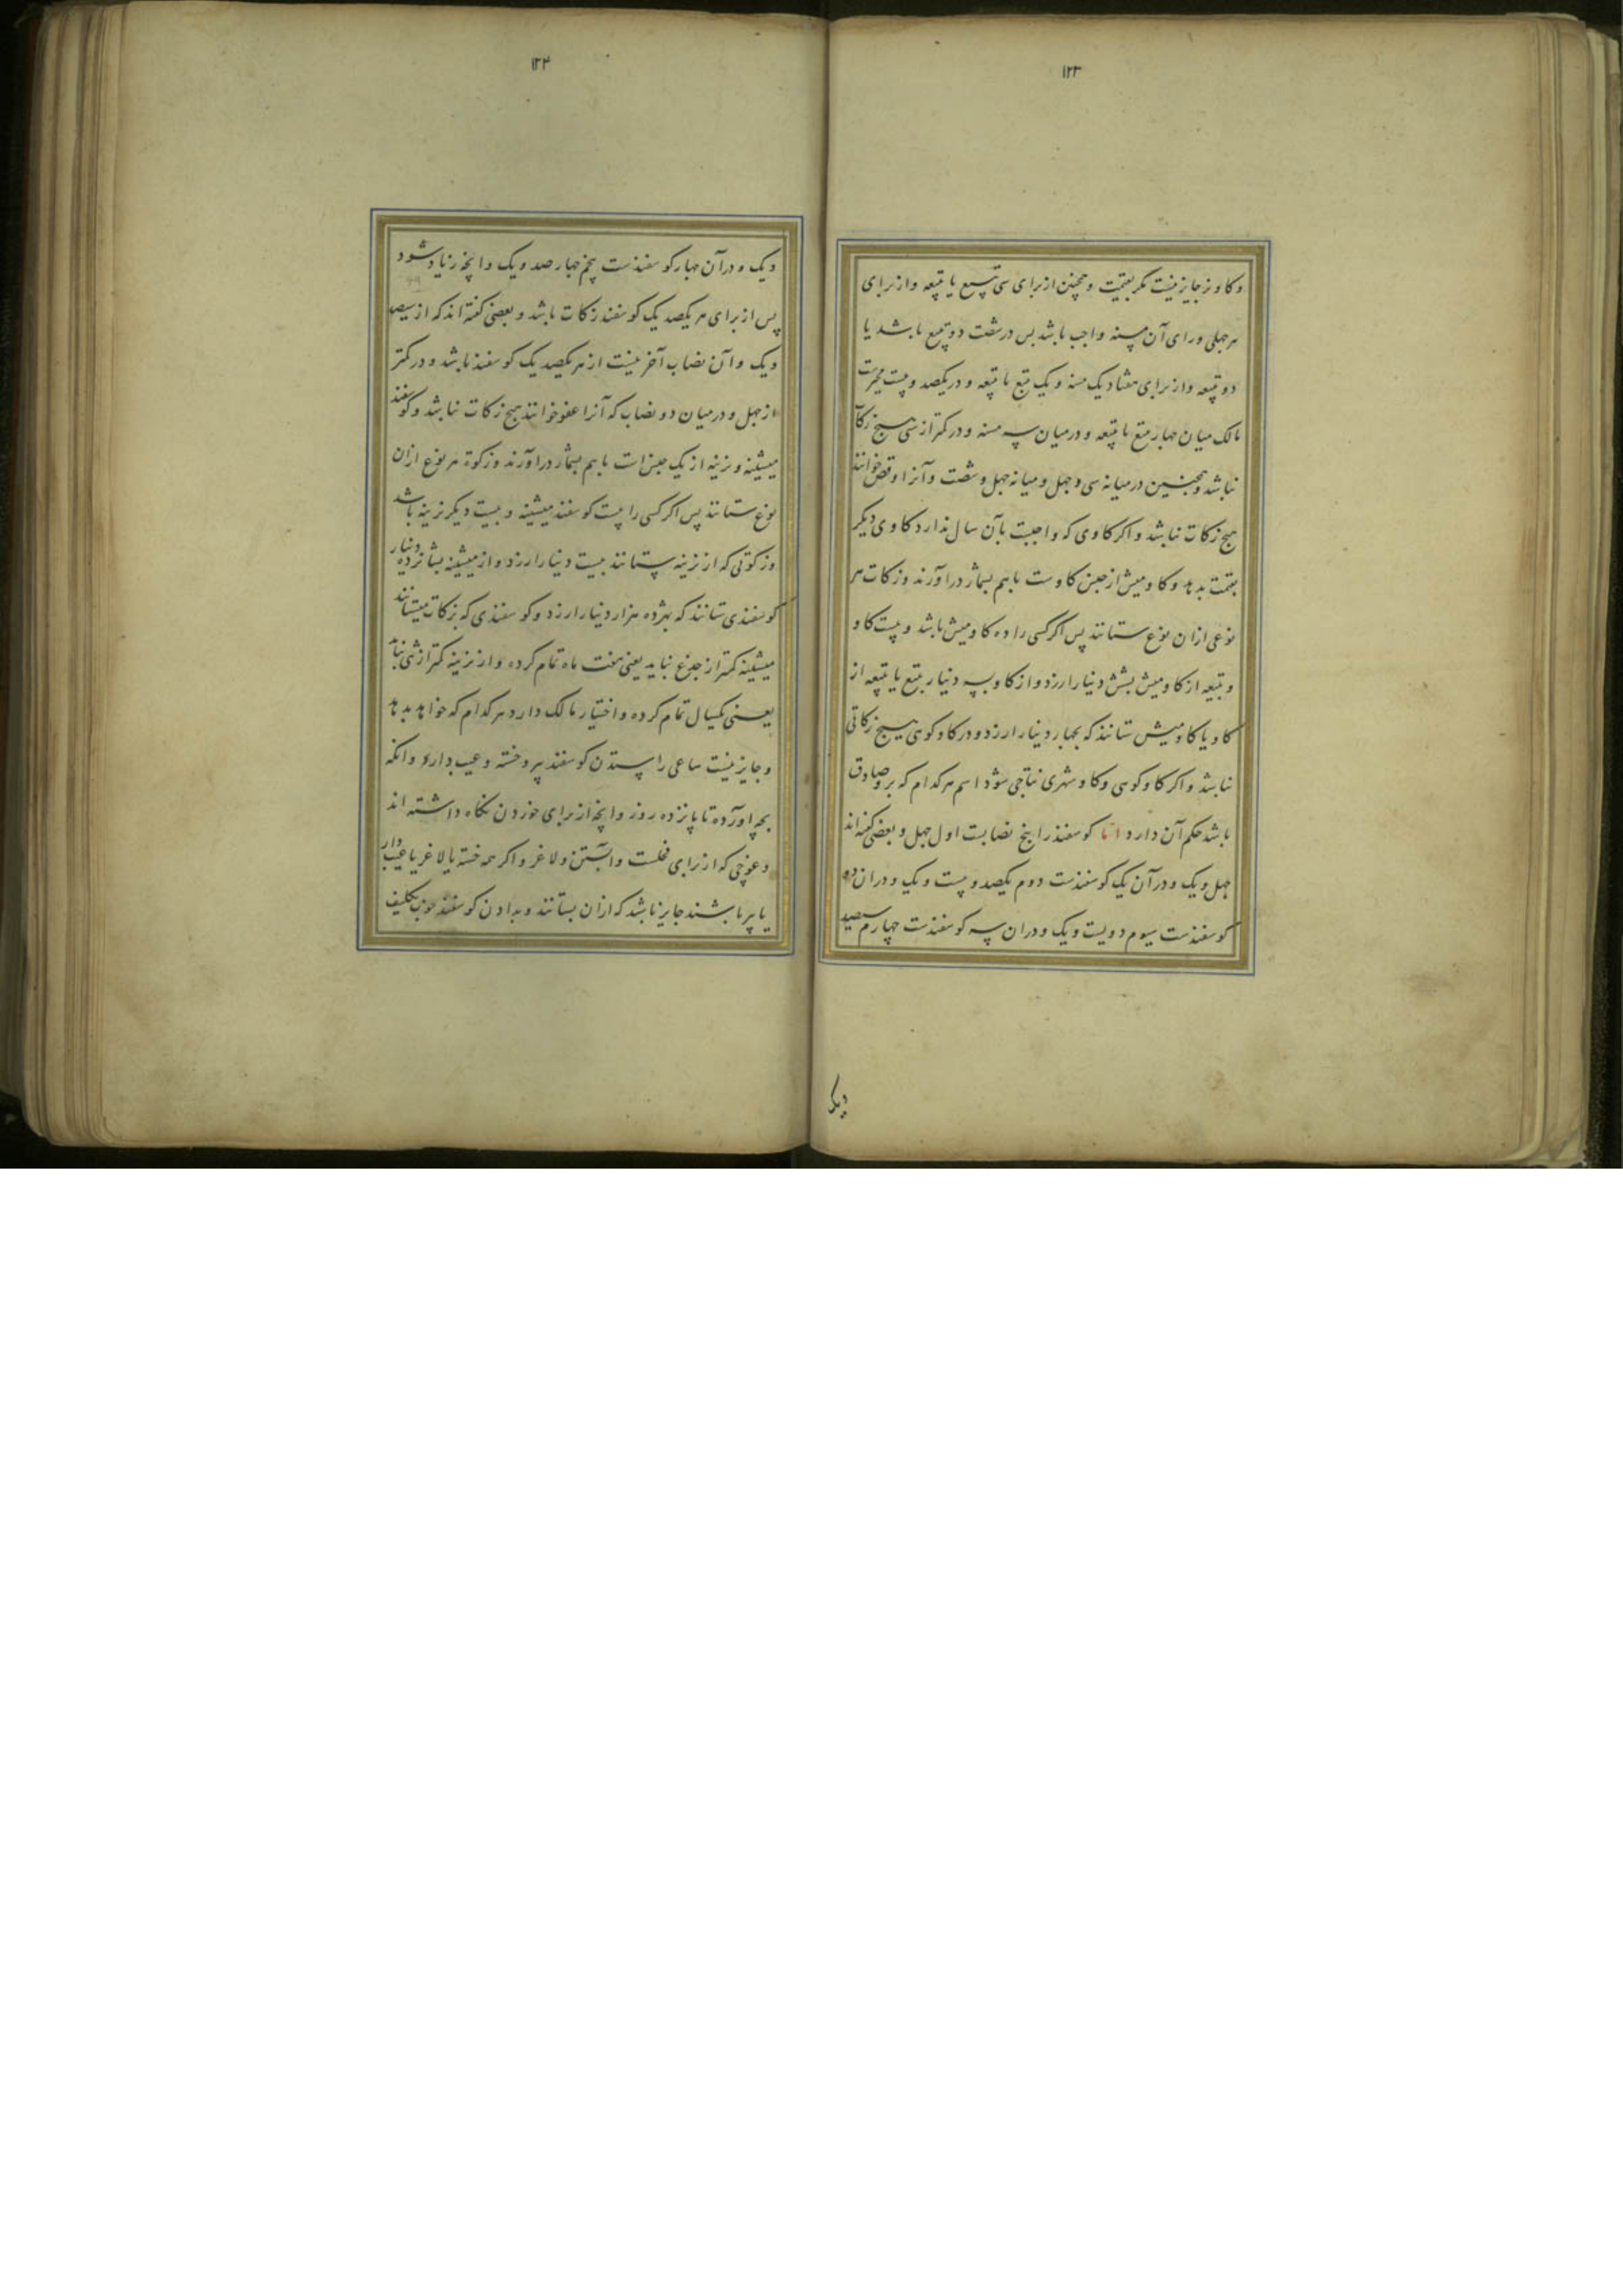 ۱۲۳
و کاو نر جایز نیست مکر بقیمت و همچنین از برای سی تبیع یا تبیعه و از برای
هر چهلی ورای آن مسنه واجب باشد پس در شصت دو تبیع باشد یا
دو تبیعه و از برای هفتاد یک مسنه و یک تبیع یا تبیعه و در یکصد و بیست مخیرست
مالک میان چهار تبیع یا تبیعه و در میان سه مسنه و در کمتر از سی هیچ زکات
نباشد و همچنین در میانه سی و چهل و میانه چهل و شصت و آنرا وقص خوانند
هیچ زکات نباشد و اکر کاوی که واجبست بآن سال ندارد کاوی دیکر
بقیمت بدهد و کاومیش از جنس کاوست باهم بشمار درآورند و زکات هر
نوعی ازان نوع ستانند پس اکر کسی را ده کاومیش باشد و بیست کاو
و تبیعه از کاومیش بشش دینار ارزد و از کاو بسه دینار تبیع یا تبیعه از
کاو یا کاومیش ستانند که بچهار دینار ارزد و در کاو کوهی هیچ زکاتی
نباشد و اکر کاو کوهی و کاو شهری نتاجی شود اسم هر کدام که برو صادق
باشد حکم آن دارد اما کوسفند را پنج نصابست اول چهل و بعضی کفته‌اند
چهل و یک و در آن یک کوسفندست دوم یکصد و بیست و یک و دران دو
کوسفندست سیوم دویست و یک و دران سه کوسفندست چهارم سیصد
ویک
۱۲۴
و یک و در آن چهار کوسفندست پنجم چهارصد و یک و آنچه زیاد شود
پس از برای هر یکصد یک کوسفند زکات باشد و بعضی کفته‌اند که از سیصد
و یک و آن نصاب آخر نیست از هر یکصد یک کوسفند باشد و در کمتر
از چهل و در میان دو نصاب که آنرا عفو خوانند هیچ زکات نباشد و کوسفند
میشینه و بزینه از یک جنس است باهم بشمار درآورند و زکوة هر نوع ازان
نوع ستانند پس اکر کسی را بیست کوسفند میشینه و بیست دیکر بزینه باشد
و زکوتی که از بزینه ستانند بیست دینار ارزد و از میشینه بشانزده دینار
کوسفندی ستانند که بهژده هزار دینار ارزد و کوسفندی که بزکات میستانند
میشینه کمتر از جذع نباید یعنی هفت ماه تمام کرده و از بزینه کمتر از ثنی نباید
یعنی یکسال تمام کرده و اختیار مالک دارد هر کدام که خواهد بدهد
و جایز نیست ساعی را ستدن کوسفند پیر و خسته و عیب‌دار و آنکه
بچه آورده تا پانزده روز و آنچه از برای خوردن نکاه داشته‌اند
و غوچی که از برای فحلست و آبستن و لاغر و اکر همه خسته یا لاغر یا عیب‌دار
یا پیر باشند جایز باشد که ازان بستانند و بدادن کوسفند خوب تکلیف